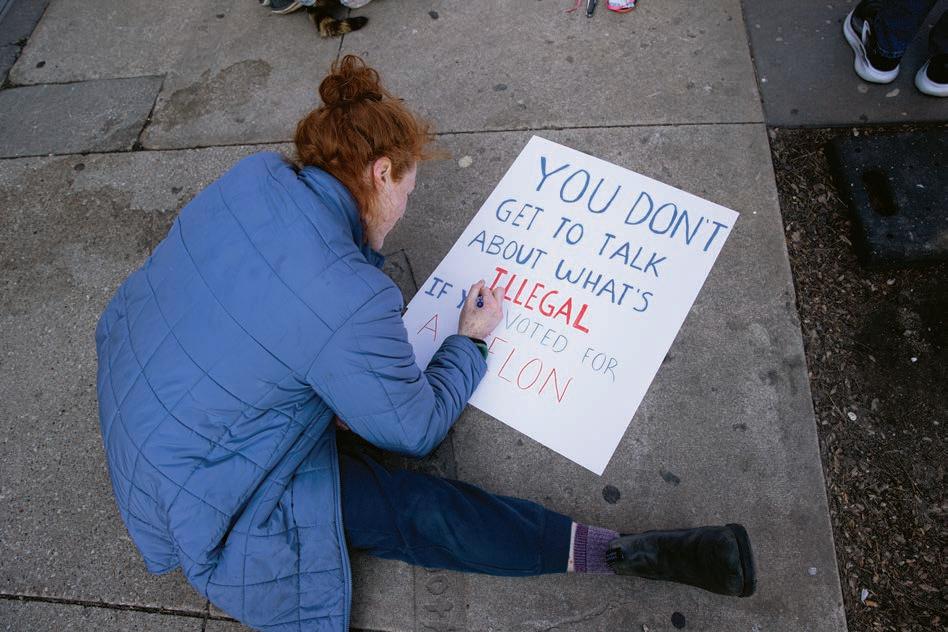 YOU DON'T
GET TO TALK
ABOUT WHAT'S
ILLEGAL
IF VOTED FOR
A